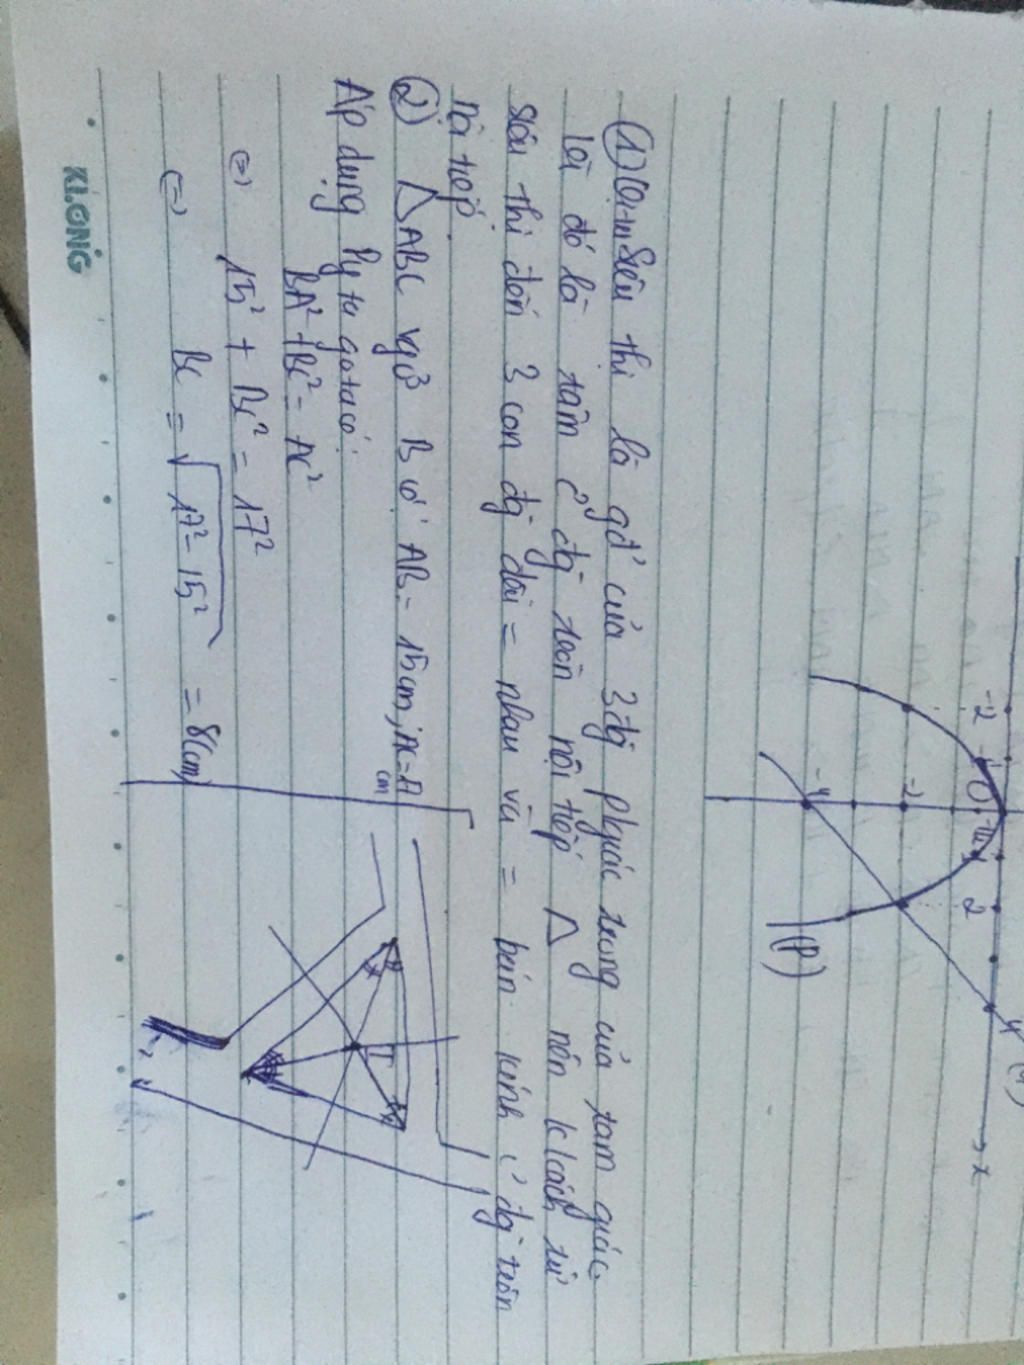 -2
-1
O
1
2
4
x
-2
-4
(P)
① Vị trí siêu thị là gđ' của 3 đg pkgiác trong của tam giác
lời đó là tâm c' đg tròn nội tiếp △ nên k/cách từ
siêu thị đến 3 con đg đều = nhau và = bán kính c' đg tròn
nội tiếp.
② △ABC vg ở B có AB = 15cm; AC = 17 cm
Áp dụng Pytago ta có:
BA² + BC² = AC²
⇔ 15² + BC² = 17²
⇔ BC = √17² - 15² = 8(cm)
I
KLONG